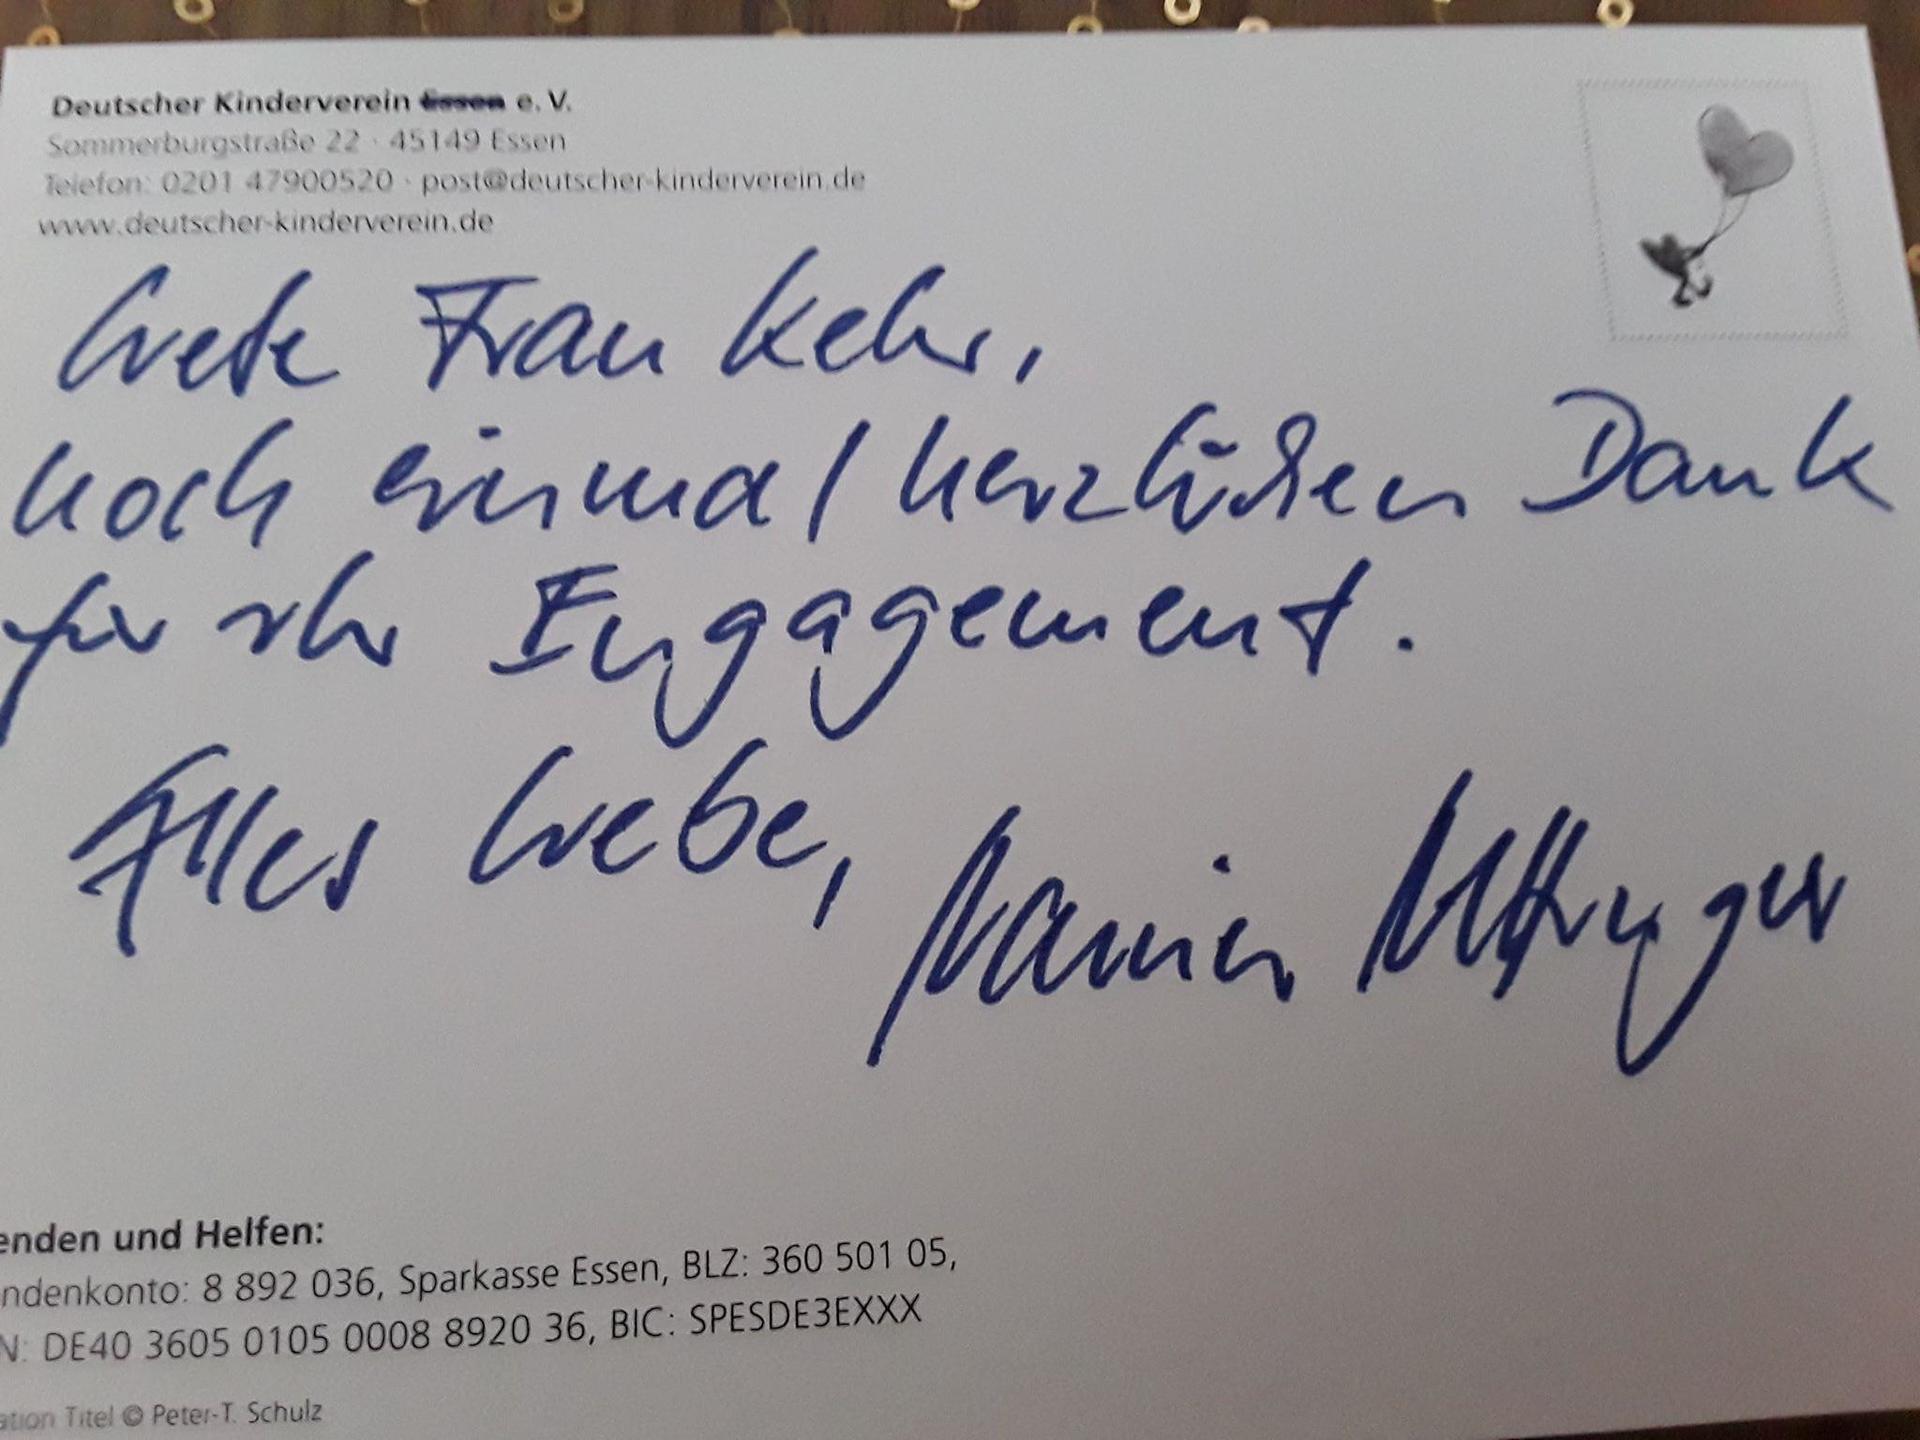 Deutscher Kinderverein Essen e. V.
Sommerburgstraße 22 · 45149 Essen
Telefon: 0201 47900520 · post@deutscher-kinderverein.de
www.deutscher-kinderverein.de
Liebe Frau Kehr,
noch einmal herzlichen Dank
für Ihr Engagement.
Alles Liebe,
enden und Helfen:
ndenkonto: 8 892 036, Sparkasse Essen, BLZ: 360 501 05,
N: DE40 3605 0105 0008 8920 36, BIC: SPESDE3EXXX
ation Titel © Peter-T. Schulz